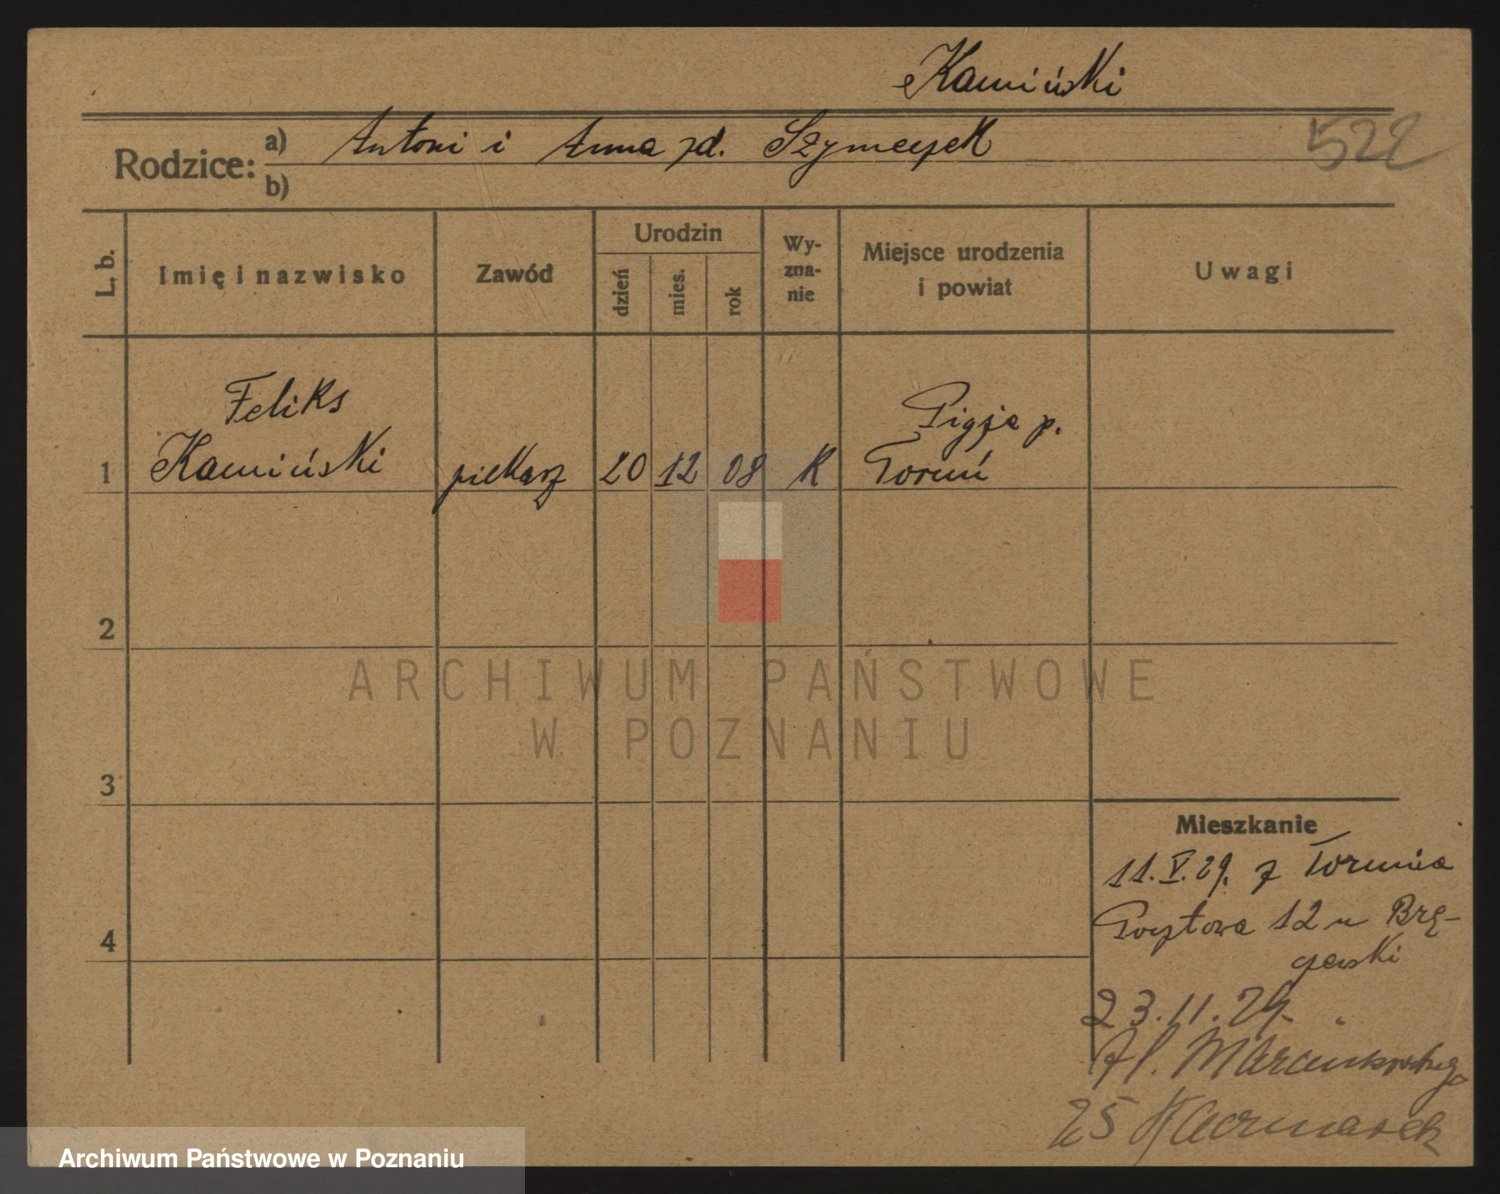 Kamiński
Rodzice: a) Antoni i Anna zd. Szymczyk
522
b)
L. b.
Imię i nazwisko
Zawód
Urodzin
dzień
mies.
rok
Wy-
zna-
nie
Miejsce urodzenia
i powiat
Uwagi
Feliks
Kamiński
1
piekarz
20
12
08
K
Pigża p.
Toruń
2
3
4
Mieszkanie
11.V.29. z Torunia
Pocztowa 12 u Brę-
czewski
23.11.29.
Al. Marcinkowskiego
25 Kaczmarek
ARCHIWUM PAŃSTWOWE
W POZNANIU
Archiwum Państwowe w Poznaniu